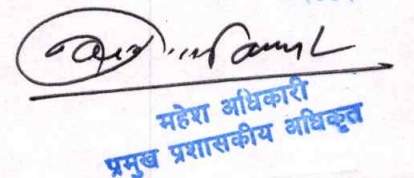 महेश अधिकारी
प्रमुख प्रशासकीय अधिकृत